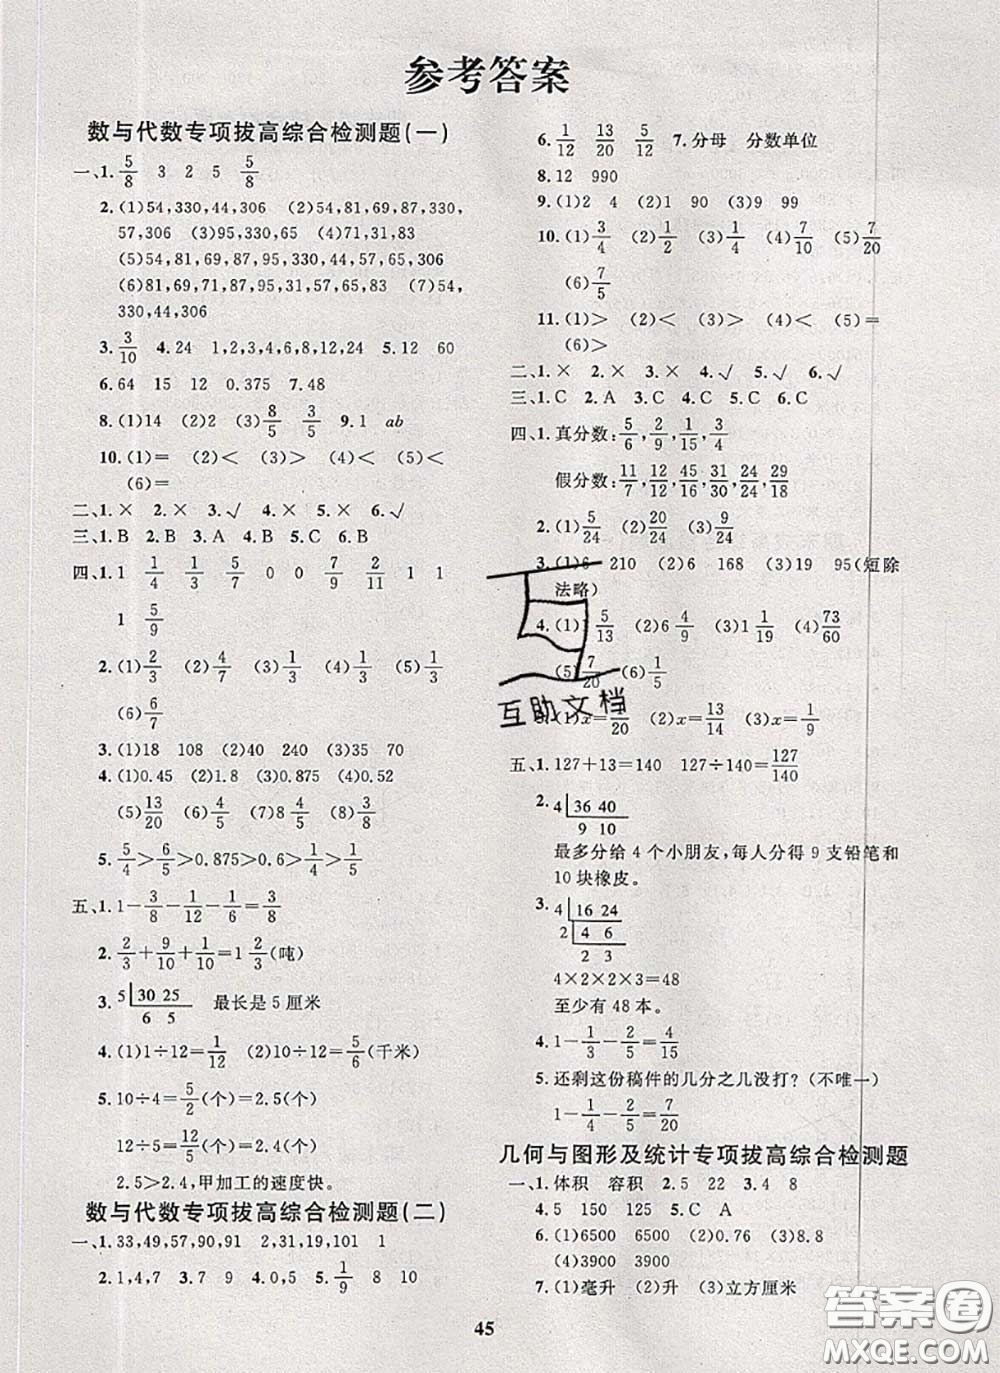 参考答案
数与代数专项拔高综合检测题(一)
一、1. 5/8 3 2 5 5/8
2.(1)54,330,44,306 (2)54,81,69,87,330,
57,306 (3)90,330 (4)71,31,83
(5)54,81,69,87,90,330,57,65,306
(6)81,69,71,87,95,31,57,83,65 (7)54,
330,44,306
3. 3/10 4.24 1,2,3,4,6,8,12,24 5.12 60
6.64 15 12 0.375 7.48
8.(1)14 (2)2 (3)8/5 3/5 9.1 ab
10.(1)= (2)< (3)> (4)< (5)<
(6)=
二、1.× 2.× 3.√ 4.× 5.× 6.√
三、1.B 2.B 3.A 4.B 5.B 6.B
四、1.1 1/4 1/3 5/7 0 0 7/9 2/11 1 1
1 5/9
2.(1)2/3 (2)4/7 (3)1/3 (4)1/3 (5)2/3
(6)6/7
3.(1)18 108 (2)40 240 (3)35 70
4.(1)0.45 (2)1.8 (3)0.25 (4)0.12
(5)13/20 (6)4/5 (7)8 4/5 (8)3/20
5. 5/4>6/5>0.875>0.6>1/4>1/5
五、1.1-3/8-1/12-1/6=3/8
2. 2/3+9/10+1/10=1 2/3(吨)
3. 5 30 25 最长是5厘米
6 5
4.(1)1÷12=1/12 (2)10÷12=5/6(千米)
5.10÷4=5/2(个)=2.5(个)
12÷5=12/5(个)=2.4(个)
2.5>2.4,甲加工的速度快。
数与代数专项拔高综合检测题(二)
一、1.33,49,57,90,91 2,31,19,101 1
2.1,4,7 3.7 9 4.0,5 5. 1/9 8 10
6. 1/12 13/20 5/12 7.分母 分数单位
8.12 990
9.(1)2 4 (2)1 90 (3)9 99
10.(1)3/4 (2)1/2 (3)1/4 (4)7/10 (5)7/20
(6)7/5
11.(1)> (2)> (3)< (4)< (5)<
(6)>
二、1.× 2.× 3.× 4.√ 5.√ 6.√
三、1.C 2.A 3.C 4.C 5.C 6.C
四、1.真分数:5/6,2/9,1/15,3/4
假分数:11/7,12/12,45/16,31/30,24/24,29/18
2.(1)5/24 (2)20/24 (3)9/24
3.(1)6 210 (2)6 168 (3)19 95(短除
法略)
4.(1) 5/13 (2)6 4/9 (3)1 1/19 (4)73/60
(5)7/20 (6)1/5
(1)x=1/20 (2)x=13/14 (3)x=1/9
互助文档
五、1.127+13=140 127÷140=127/140
2. 4 36 40
9 10
最多分给4个小朋友,每人分得9支铅笔和
10块橡皮。
3. 4 16 24
2 4 6
2 3
4×2×2×3=48
至少有48本。
4.1-1/3-2/5=4/15
5.还剩这份稿件的几分之几没打?(不唯一)
1-1/4-2/5=7/20
几何与图形及统计专项拔高综合检测题
一、1.体积 容积 2.5 22 3.4 8
4.5 150 125 5.C A
6.(1)6500 6500 (2)0.76 (3)8.8
(4)3900 3900
7.(1)毫升 (2)升 (3)立方厘米
45
答案圈
MXQE.COM